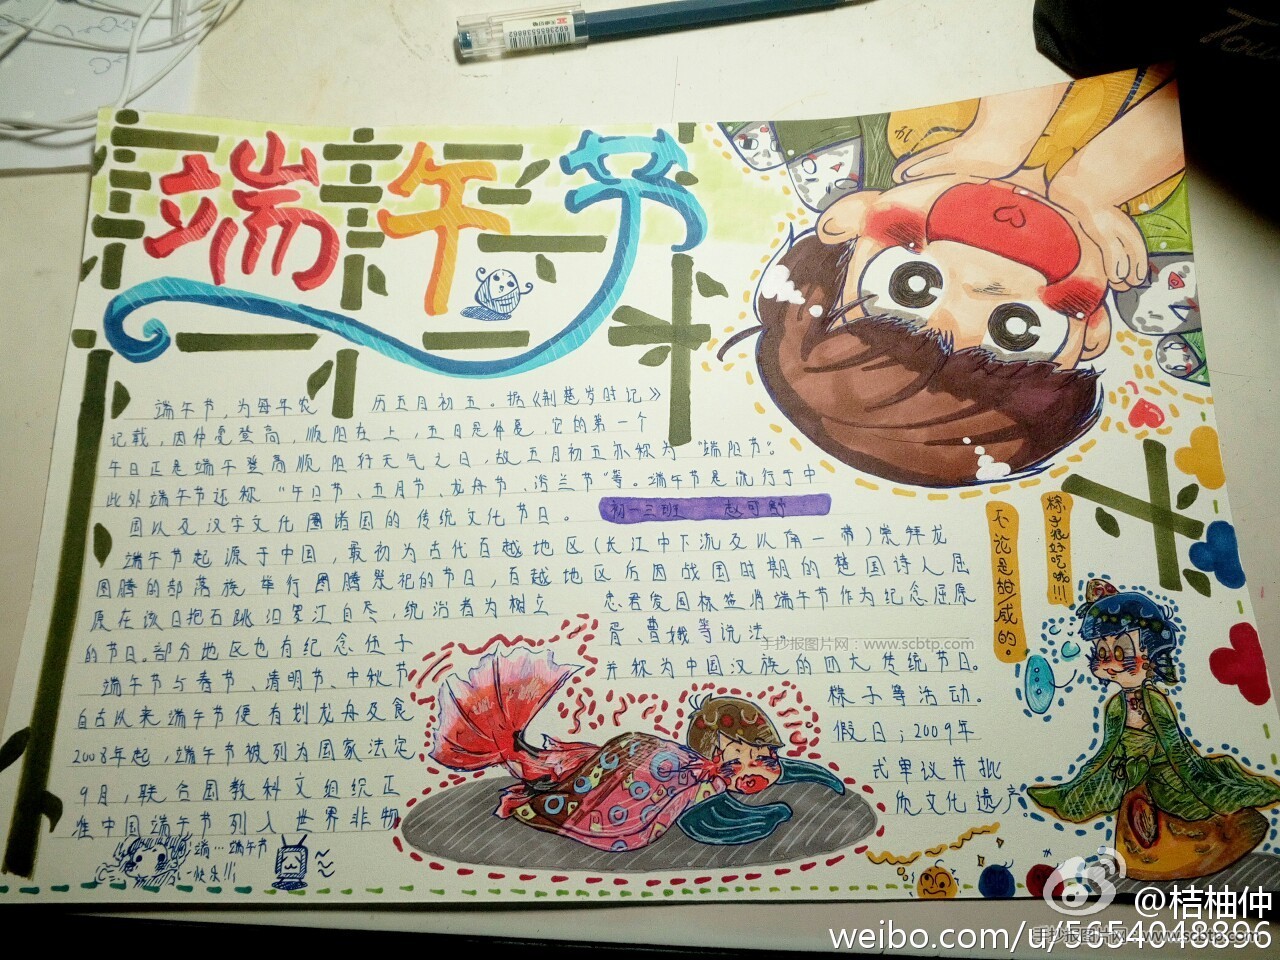 端午节
端午节，为每年农 历五月初五。据《荆楚岁时记》
记载，因仲夏登高，顺阳在上，五月是仲夏，它的第一个
午日正是登高顺阳好天气之日，故五月初五亦称为“端阳节”。
此外端午节还称“午日节、五月节、龙舟节、浴兰节”等。端午节是流行于中
国以及汉字文化圈诸国的传统文化节日。
初一三班 赵可
端午节起源于中国，最初为古代百越地区（长江中下流及以南一带）崇拜龙
图腾的部落族举行图腾祭祀的节日，百越地区后因战国时期的楚国诗人屈
原在该日抱石跳汨罗江自尽，统治者为树立 忠君爱国标签将端午节作为纪念屈原
的节日。部分地区也有纪念伍子 胥、曹娥等说法。
端午节与春节、清明节、中秋节 并称为中国汉族的四大传统节日。
自古以来端午节便有划龙舟及食 粽子等活动。
2008年起，端午节被列为国家法定 假日；2009年
9月，联合国教科文组织正 式审议并批
准中国端午节列入世界非物 质文化遗产
端…端午节
快乐!!!
不论是甜咸的。
粽子很好吃哦!!!
6923655538062
手抄报图片网：www.scbtp.com
@桔柚仲
weibo.com/u/5654048896
手抄报图片网：www.scbtp.com